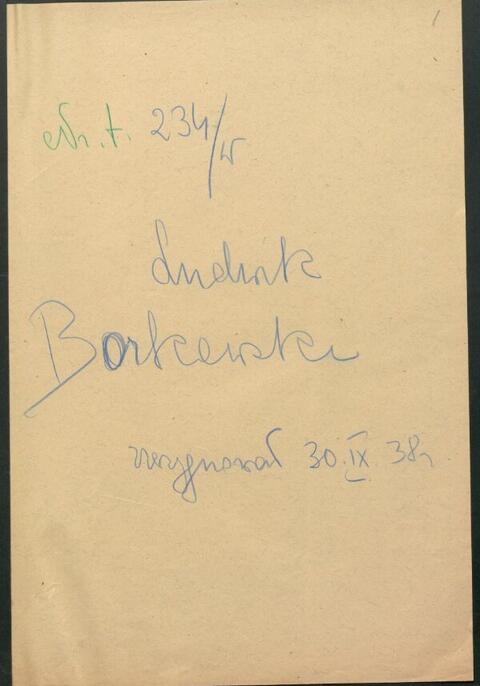 1
Nr. t. 234/W
Ludwik
Borkowski
zrezygnował 30.IX.38r.